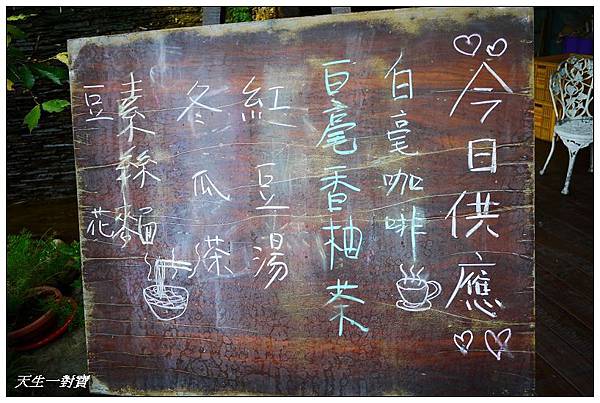 今日供應
白毫咖啡
白毫香柚茶
紅豆湯
冬瓜茶
素絲麵
豆花
天生一對寶